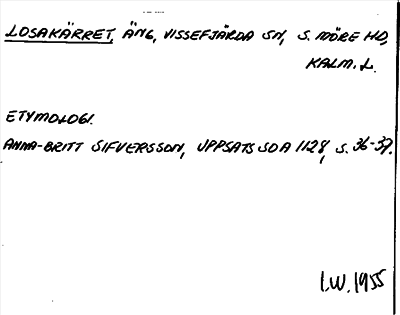 LOSAKÄRRET, ÄNG, VISSEFJÄRDA SN, S. MÖRE HD,
KALM. L.
ETYMOLOGI.
ANNA-BRITT SIFVERSSON, UPPSATS SOA 1128, S. 36-37.
I.W. 1955